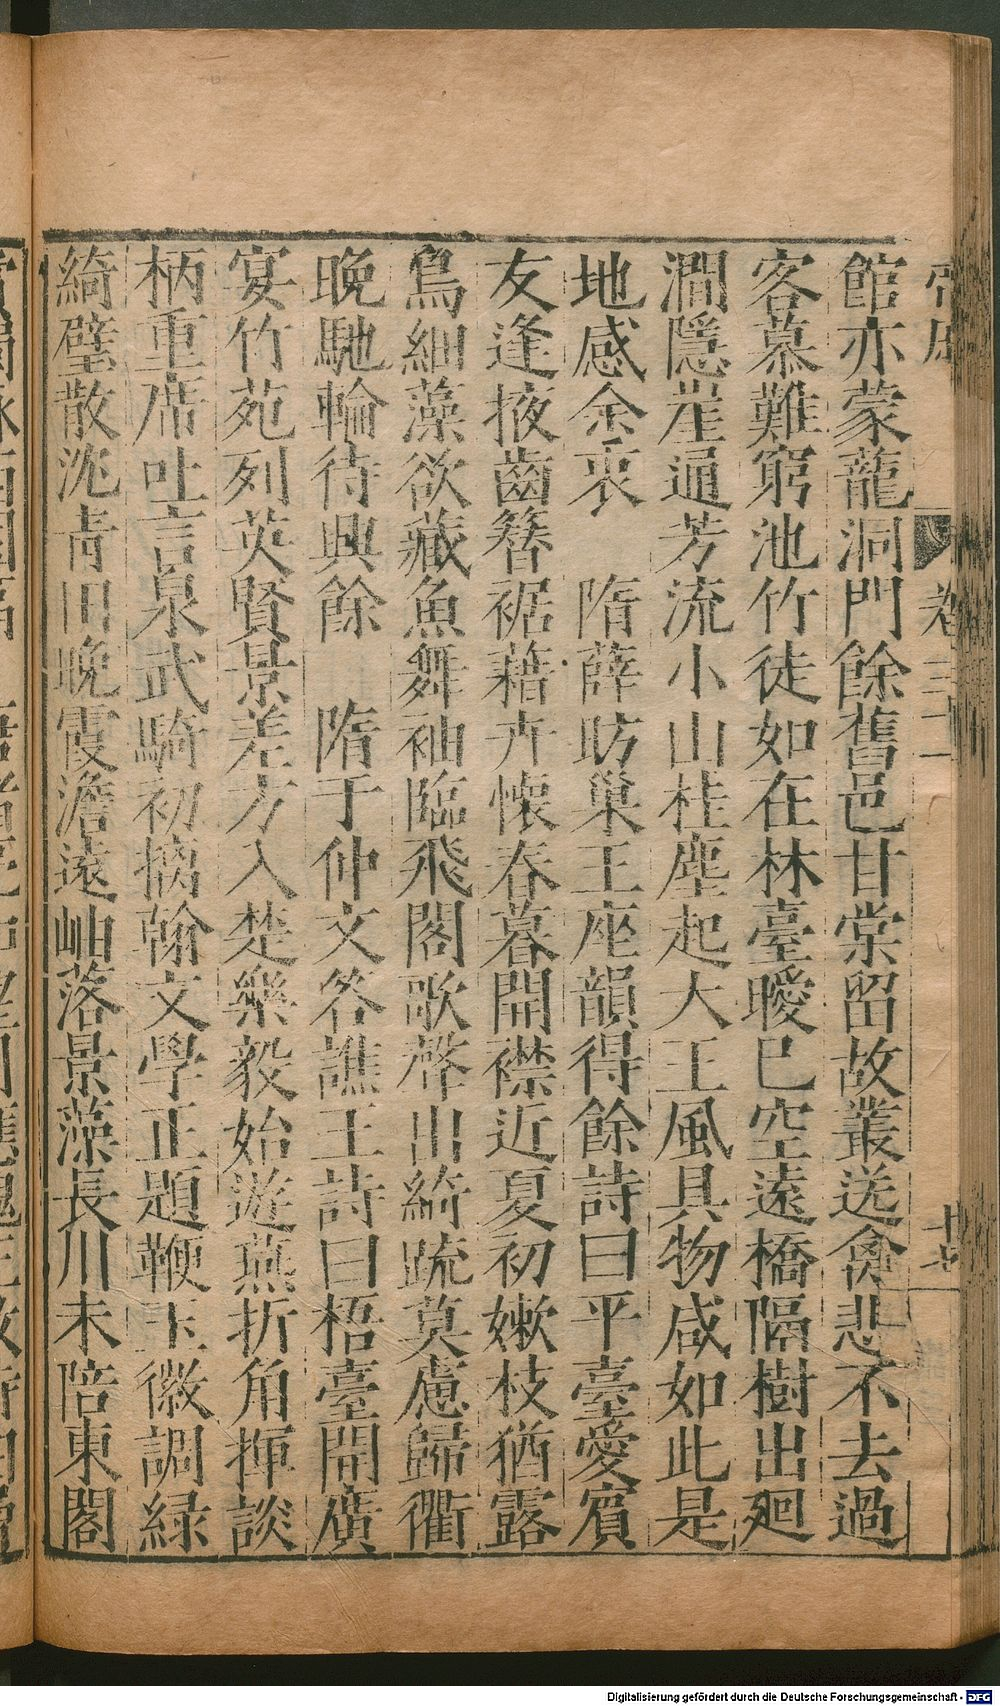 館亦蒙蘢洞門餘舊邑甘棠留故叢送禽悲不去過
客慕難窮池竹徒如在林臺曖已空遠橋隔樹出廻
澗隱崖通芳流小山桂塵起大王風具物咸如此是
地感余衷　隋薛昉巢王座韻得餘詩曰平臺愛賓
友逢掖齒簪裾藉卉懷春暮開襟近夏初嫩枝猶露
鳥細藻欲藏魚舞袖臨飛閣歌聲出綺疏莫慮歸衢
晚馳輪待興餘　隋于仲文答譙王詩曰梧臺開廣
宴竹苑列英賢景差方入楚樂毅始遊燕折角揮談
柄重席吐言泉武騎初摛翰文學正題鞭玉徽調緑
綺璧散沲青田晚霞澹遠岫落景藻長川未陪東閣
卷三十一
十七
Digitalisierung gefördert durch die Deutsche Forschungsgemeinschaft - DFG